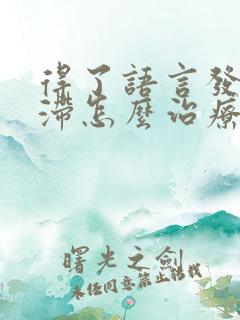 得了語言發
滯怎麼治療
曙光之劍
未经同意禁止转载